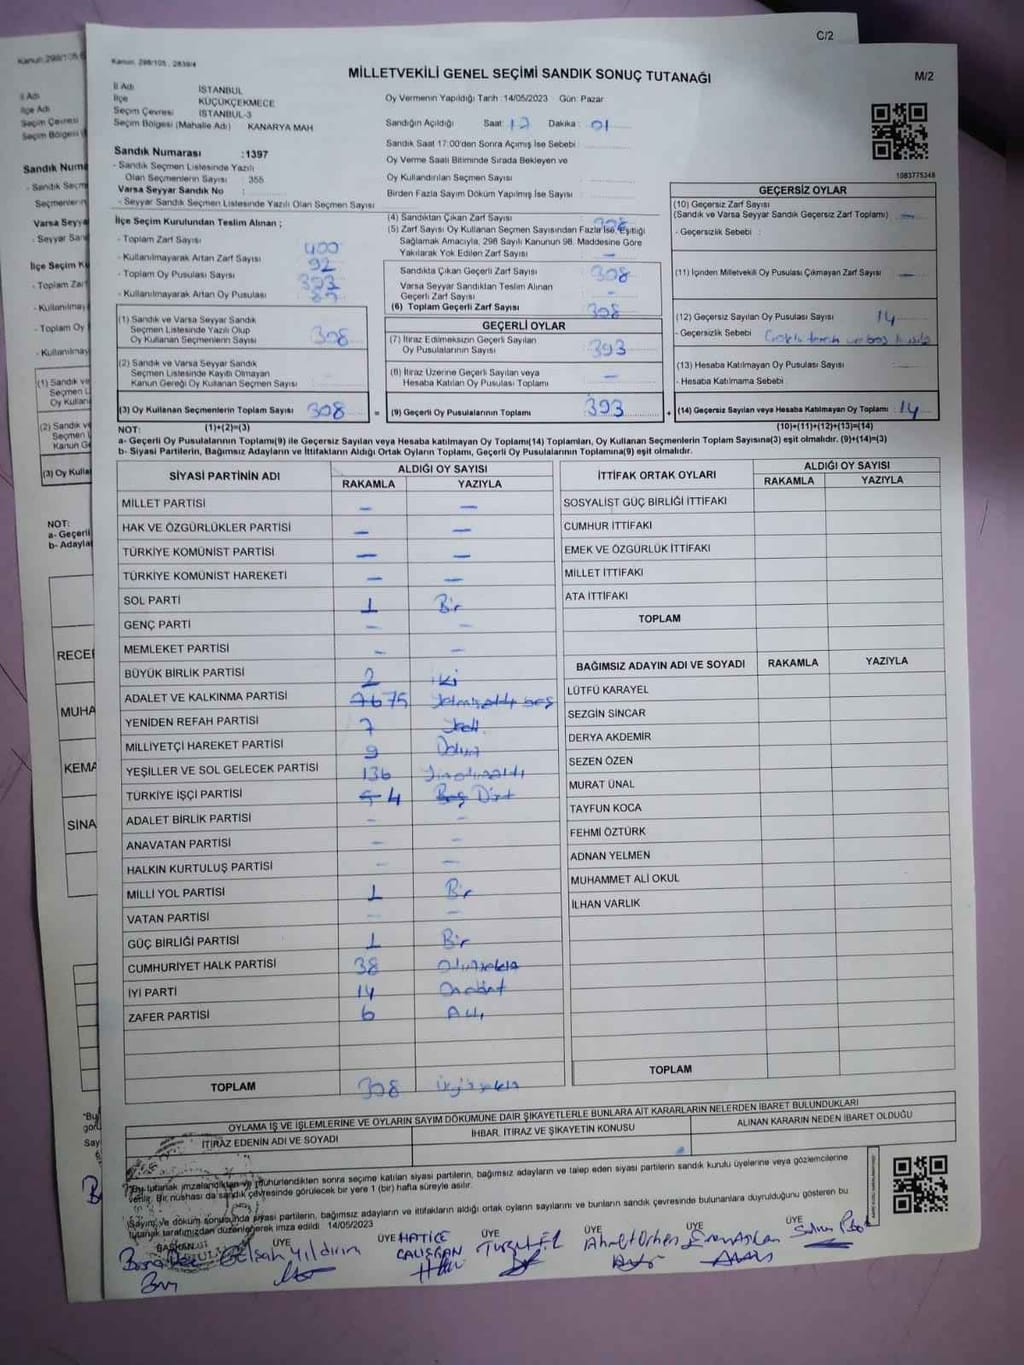 C/2
Kanun: 298/105, 2839/4
MİLLETVEKİLİ GENEL SEÇİMİ SANDIK SONUÇ TUTANAĞI
M/2
İl Adı İSTANBUL
İlçe KÜÇÜKÇEKMECE
Seçim Çevresi İSTANBUL-3
Seçim Bölgesi (Mahalle Adı) KANARYA MAH
Oy Vermenin Yapıldığı Tarih :14/05/2023 Gün: Pazar
Sandığın Açıldığı Saat: 17 Dakika: 01
Sandık Saat 17:00'den Sonra Açımış İse Sebebi
Oy Verme Saati Bitiminde Sırada Bekleyen ve
Oy Kullandırılan Seçmen Sayısı
Birden Fazla Sayım Döküm Yapılmış İse Sayısı
1083775348
Sandık Numarası :1397
- Sandık Seçmen Listesinde Yazılı
Olan Seçmenlerin Sayısı : 355
Varsa Seyyar Sandık No :
- Seyyar Sandık Seçmen Listesinde Yazılı Olan Seçmen Sayısı
İlçe Seçim Kurulundan Teslim Alınan ;
- Toplam Zarf Sayısı 400
- Kullanılmayarak Artan Zarf Sayısı 92
- Toplam Oy Pusulası Sayısı 393
- Kullanılmayarak Artan Oy Pusulası
(1) Sandık ve Varsa Seyyar Sandık
Seçmen Listesinde Yazılı Olup
Oy Kullanan Seçmenlerin Sayısı 308
(2) Sandık ve Varsa Seyyar Sandık
Seçmen Listesinde Kayıtlı Olmayan
Kanun Gereği Oy Kullanan Seçmen Sayısı
(3) Oy Kullanan Seçmenlerin Toplam Sayısı 308 =
(1)+(2)=(3)
(4) Sandıktan Çıkan Zarf Sayısı 308
(5) Zarf Sayısı Oy Kullanan Seçmen Sayısından Fazla İse, Eşitliği
Sağlamak Amacıyla, 298 Sayılı Kanunun 98. Maddesine Göre
Yakılarak Yok Edilen Zarf Sayısı —
Sandıkta Çıkan Geçerli Zarf Sayısı 308
Varsa Seyyar Sandıktan Teslim Alınan
Geçerli Zarf Sayısı —
(6) Toplam Geçerli Zarf Sayısı 308
GEÇERLİ OYLAR
(7) İtiraz Edilmeksizin Geçerli Sayılan
Oy Pusulalarının Sayısı 393
(8) İtiraz Üzerine Geçerli Sayılan veya
Hesaba Katılan Oy Pusulası Toplamı —
(9) Geçerli Oy Pusulalarının Toplamı 393 +
GEÇERSİZ OYLAR
(10) Geçersiz Zarf Sayısı
(Sandık ve Varsa Seyyar Sandık Geçersiz Zarf Toplamı) —
- Geçersizlik Sebebi :
(11) İçinden Milletvekili Oy Pusulası Çıkmayan Zarf Sayısı —
(12) Geçersiz Sayılan Oy Pusulası Sayısı 14
- Geçersizlik Sebebi
(13) Hesaba Katılmayan Oy Pusulası Sayısı
- Hesaba Katılmama Sebebi
(14) Geçersiz Sayılan veya Hesaba Katılmayan Oy Toplamı 14
(10)+(11)+(12)+(13)=(14)
NOT:
a- Geçerli Oy Pusulalarının Toplamı(9) ile Geçersiz Sayılan veya Hesaba katılmayan Oy Toplamı(14) Toplamları, Oy Kullanan Seçmenlerin Toplam Sayısına(3) eşit olmalıdır. (9)+(14)=(3)
b- Siyasi Partilerin, Bağımsız Adayların ve İttifakların Aldığı Ortak Oyların Toplamı, Geçerli Oy Pusulalarının Toplamına(9) eşit olmalıdır.
SİYASİ PARTİNİN ADI ALDIĞI OY SAYISI
RAKAMLA YAZIYLA
MİLLET PARTİSİ — —
HAK VE ÖZGÜRLÜKLER PARTİSİ — —
TÜRKİYE KOMÜNİST PARTİSİ — —
TÜRKİYE KOMÜNİST HAREKETİ — —
SOL PARTİ 1 Bir
GENÇ PARTİ — —
MEMLEKET PARTİSİ — —
BÜYÜK BİRLİK PARTİSİ 2 iki
ADALET VE KALKINMA PARTİSİ 7675
YENİDEN REFAH PARTİSİ 7 Yedi
MİLLİYETÇİ HAREKET PARTİSİ 9 Dokuz
YEŞİLLER VE SOL GELECEK PARTİSİ 136
TÜRKİYE İŞÇİ PARTİSİ 5 4 Beş Dört
ADALET BİRLİK PARTİSİ — —
ANAVATAN PARTİSİ — —
HALKIN KURTULUŞ PARTİSİ — —
MİLLİ YOL PARTİSİ 1 Bir
VATAN PARTİSİ — —
GÜÇ BİRLİĞİ PARTİSİ 1 Bir
CUMHURİYET HALK PARTİSİ 38 Otuzsekiz
İYİ PARTİ 14 Ondört
ZAFER PARTİSİ 6 Altı
TOPLAM 308 üçyüzsekiz
İTTİFAK ORTAK OYLARI ALDIĞI OY SAYISI
RAKAMLA YAZIYLA
SOSYALİST GÜÇ BİRLİĞİ İTTİFAKI
CUMHUR İTTİFAKI
EMEK VE ÖZGÜRLÜK İTTİFAKI
MİLLET İTTİFAKI
ATA İTTİFAKI
TOPLAM
BAĞIMSIZ ADAYIN ADI VE SOYADI RAKAMLA YAZIYLA
LÜTFÜ KARAYEL
SEZGİN SİNCAR
DERYA AKDEMİR
SEZEN ÖZEN
MURAT ÜNAL
TAYFUN KOCA
FEHMİ ÖZTÜRK
ADNAN YELMEN
MUHAMMET ALİ OKUL
İLHAN VARLIK
TOPLAM
OYLAMA İŞ VE İŞLEMLERİNE VE OYLARIN SAYIM DÖKÜMÜNE DAİR ŞİKAYETLERLE BUNLARA AİT KARARLARIN NELERDEN İBARET BULUNDUKLARI
İTİRAZ EDENİN ADI VE SOYADI İHBAR, İTİRAZ VE ŞİKAYETİN KONUSU ALINAN KARARIN NEDEN İBARET OLDUĞU
"Bu tutanak imzalandıktan ve mühürlendikten sonra seçime katılan siyasi partilerin, bağımsız adayların ve talep eden siyasi partilerin sandık kurulu üyelerine veya gözlemcilerine
verilir. Bir nüshası da sandık çevresinde görülecek bir yere 1 (bir) hafta süreyle asılır.
Sayım ve döküm sonucunda siyasi partilerin, bağımsız adayların ve ittifakların aldığı ortak oyların sayılarını ve bunların sandık çevresinde bulunanlara duyurulduğunu gösteren bu
tutanak tarafımızdan düzenlenerek imza edildi 14/05/2023
BAŞKAN ÜYE ÜYE ÜYE ÜYE ÜYE ÜYE
Gülşah Yıldırım HATİCE ÇALIŞKAN Turgut EL Ahmet Orhan Eren Aslan